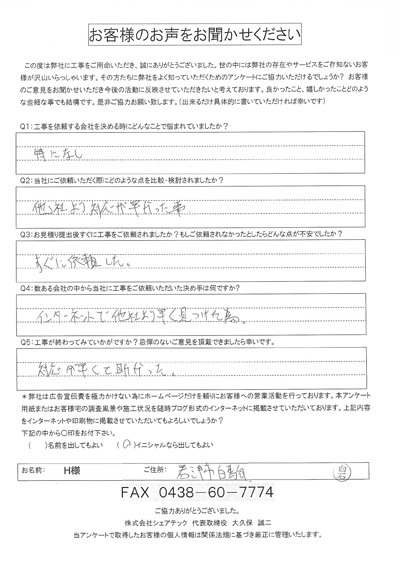 お客様のお声をお聞かせください
この度は弊社に工事をご用命いただき、誠にありがとうございました。世の中には弊社の存在やサービスをご存知ないお客
様が沢山いらっしゃいます。その方たちに弊社をよく知っていただくためのアンケートにご協力いただけるでしょうか？ お客様
のご意見をお聞かせいただき今後の活動に反映させていただきたいと考えております。良かったこと、嬉しかったことどのよう
な些細な事でも結構です。是非ご協力お願い致します。（出来るだけ具体的に書いていただければ幸いです）
Q1:工事を依頼する会社を決める時にどんなことで悩まれていましたか？
特になし
Q2:当社にご依頼いただく際にどのような点を比較・検討されましたか？
他社より対応が早かった事.
Q3:お見積り提出後すぐに工事をご依頼されましたか？もしご依頼されなかったとしたらどんな点が不安でしたか？
すぐに依頼した。
Q4:数ある会社の中から当社に工事をご依頼いただいた決め手は何ですか？
インターネットで他社より早く見つけた為。
Q5:工事が終わってみていかがですか？忌憚のないご意見を頂戴できましたら幸いです。
対応が早くて助かった。
＊弊社は広告宣伝費を極力かけない為にホームページだけを頼りにお客様への営業活動を行っております。本アンケート
用紙またはお客様宅の調査風景や施工状況を随時ブログ形式のインターネットに掲載させていただいております。上記内容
をインターネットや印刷物に掲載させていただいてもよろしいでしょうか？
下記の中から〇印をお付下さい。
（　　）名前を出してもよい　（〇）イニシャルなら出してもよい
お名前: H様 ご住所: 君津市
FAX 0438-60-7774
ご協力ありがとうございました。
株式会社シェアテック 代表取締役 大久保 誠二
当アンケートで取得したお客様の個人情報は関係法規に基づき厳正に管理いたします。